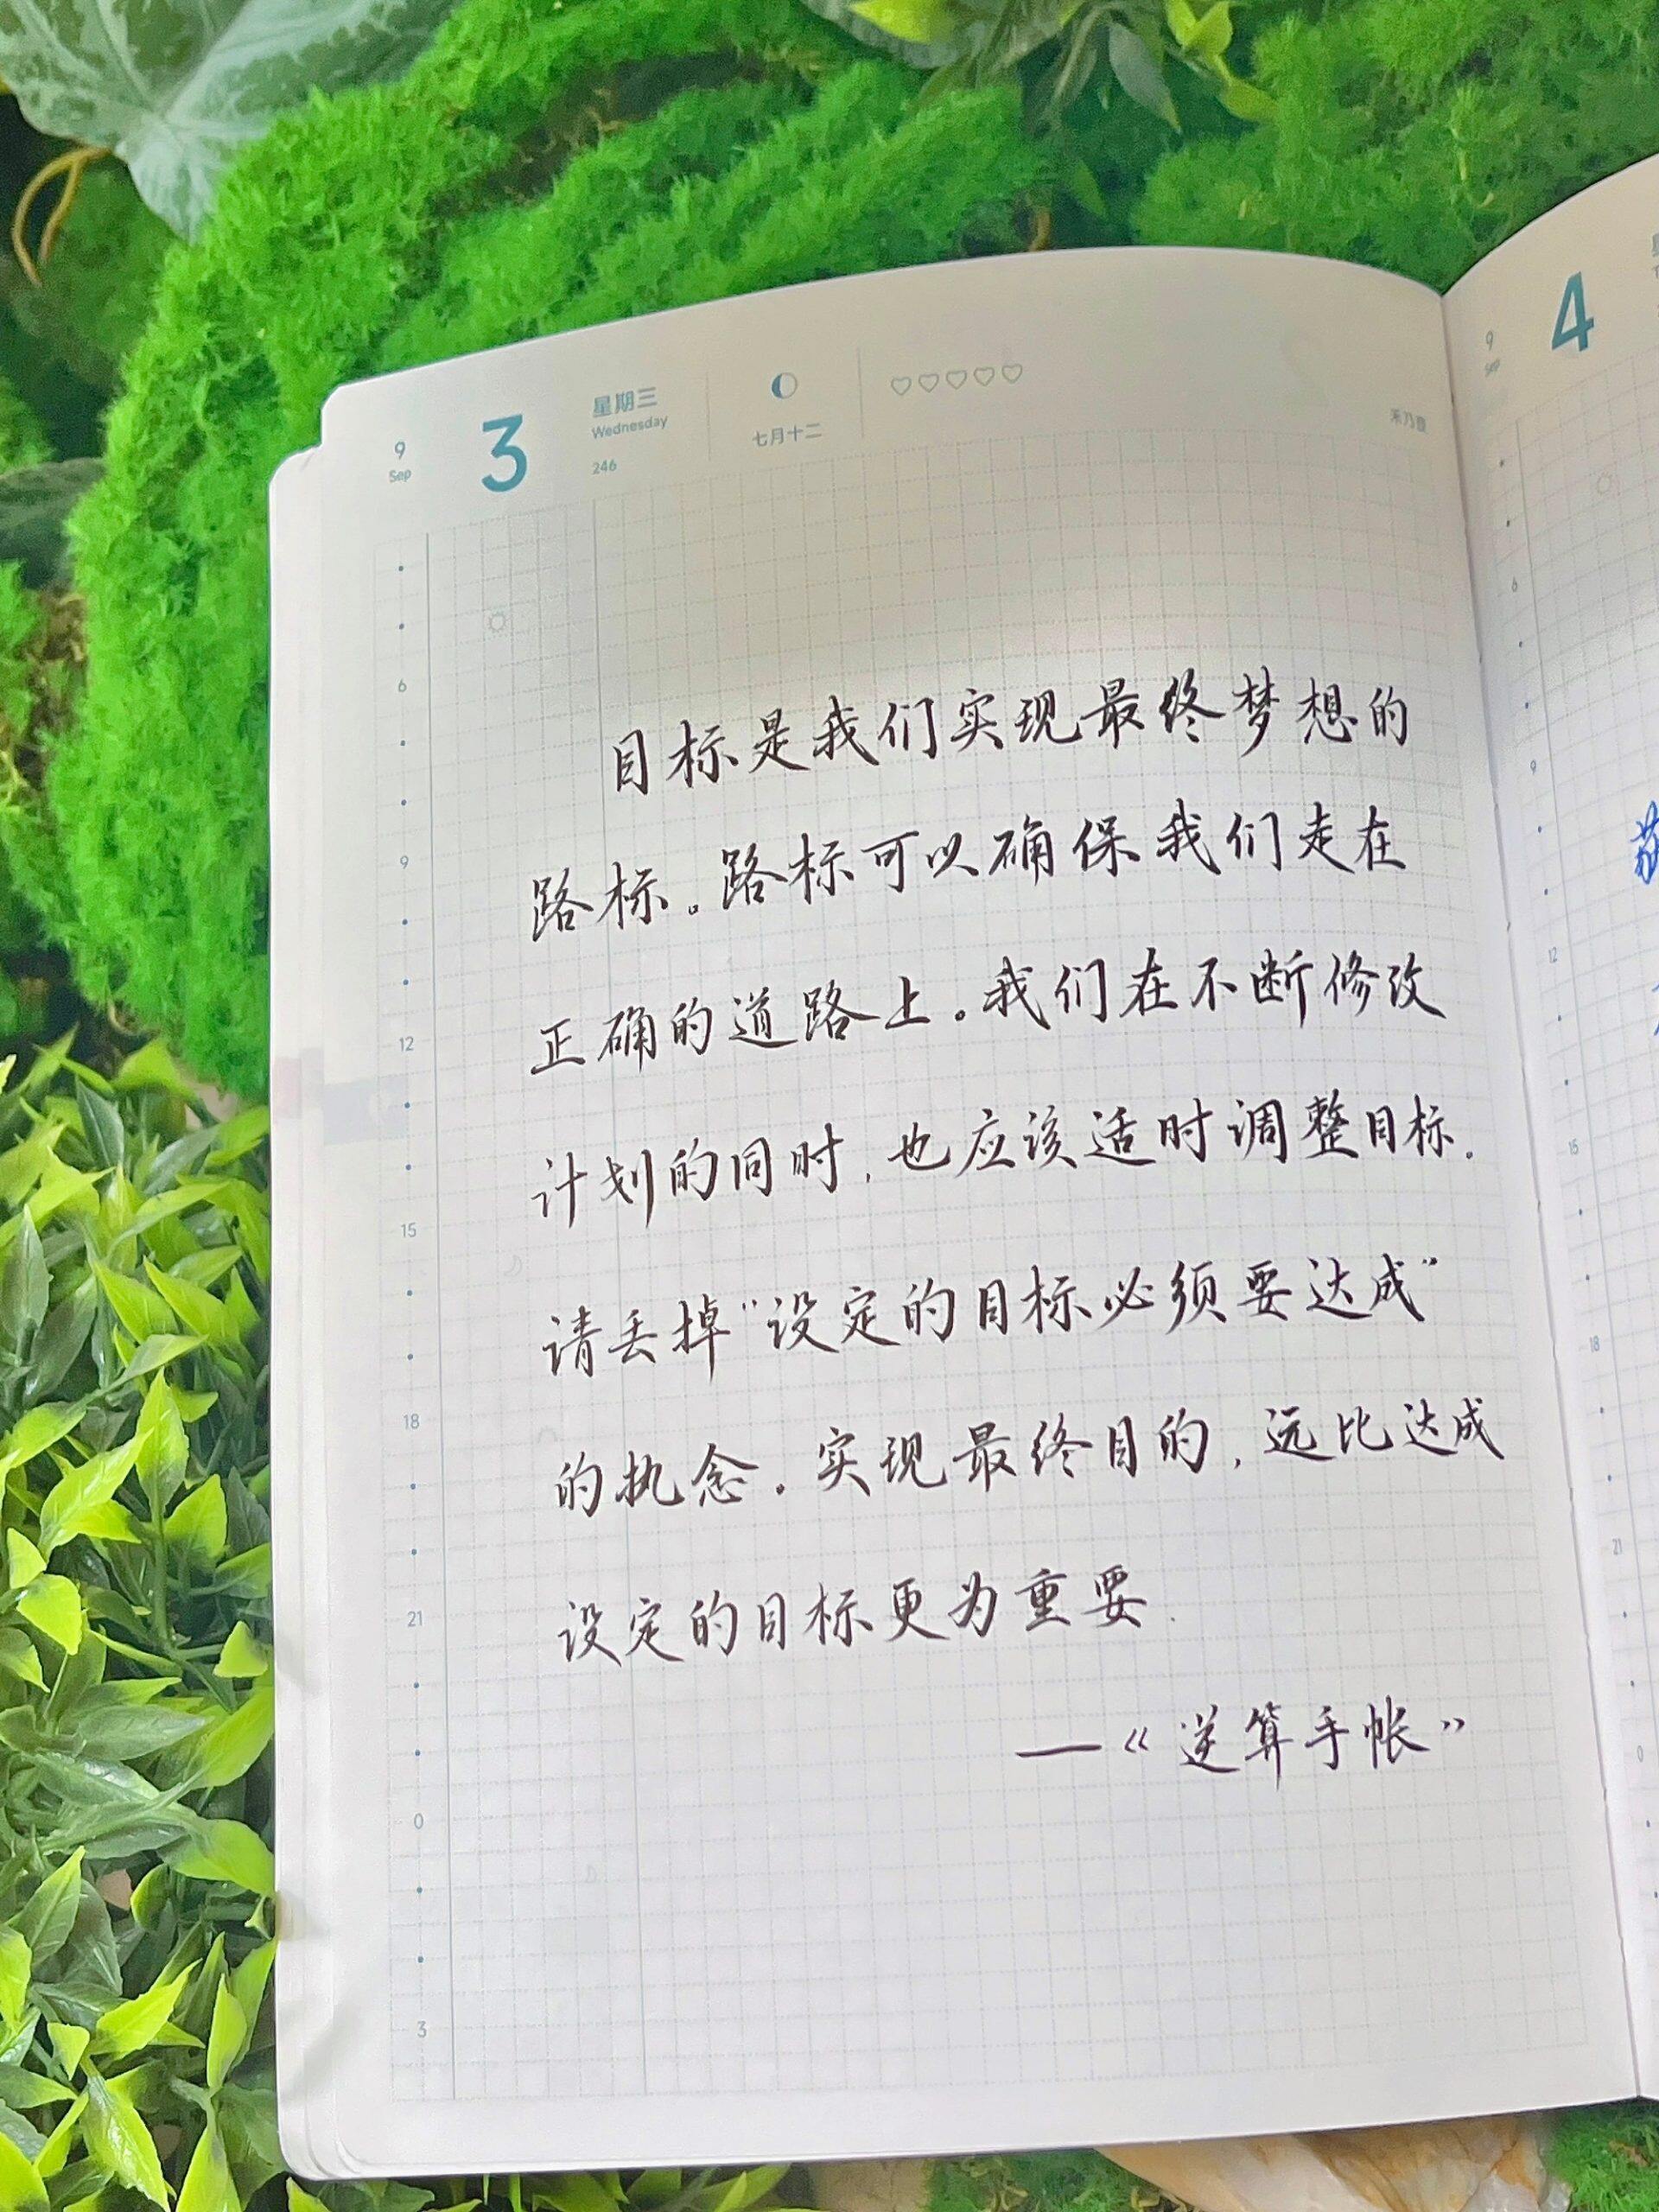 9
Sep
3
星期三
Wednesday
246
七月十二
禾乃登
目标是我们实现最终梦想的
路标。路标可以确保我们走在
正确的道路上。我们在不断修改
计划的同时,也应该适时调整目标.
请丢掉"设定的目标必须要达成"
的执念。实现最终目的,远比达成
设定的目标更为重要.
—《逆算手帐》
6
9
12
15
18
21
0
3
9
Sep
4
6
9
12
15
18
21
0